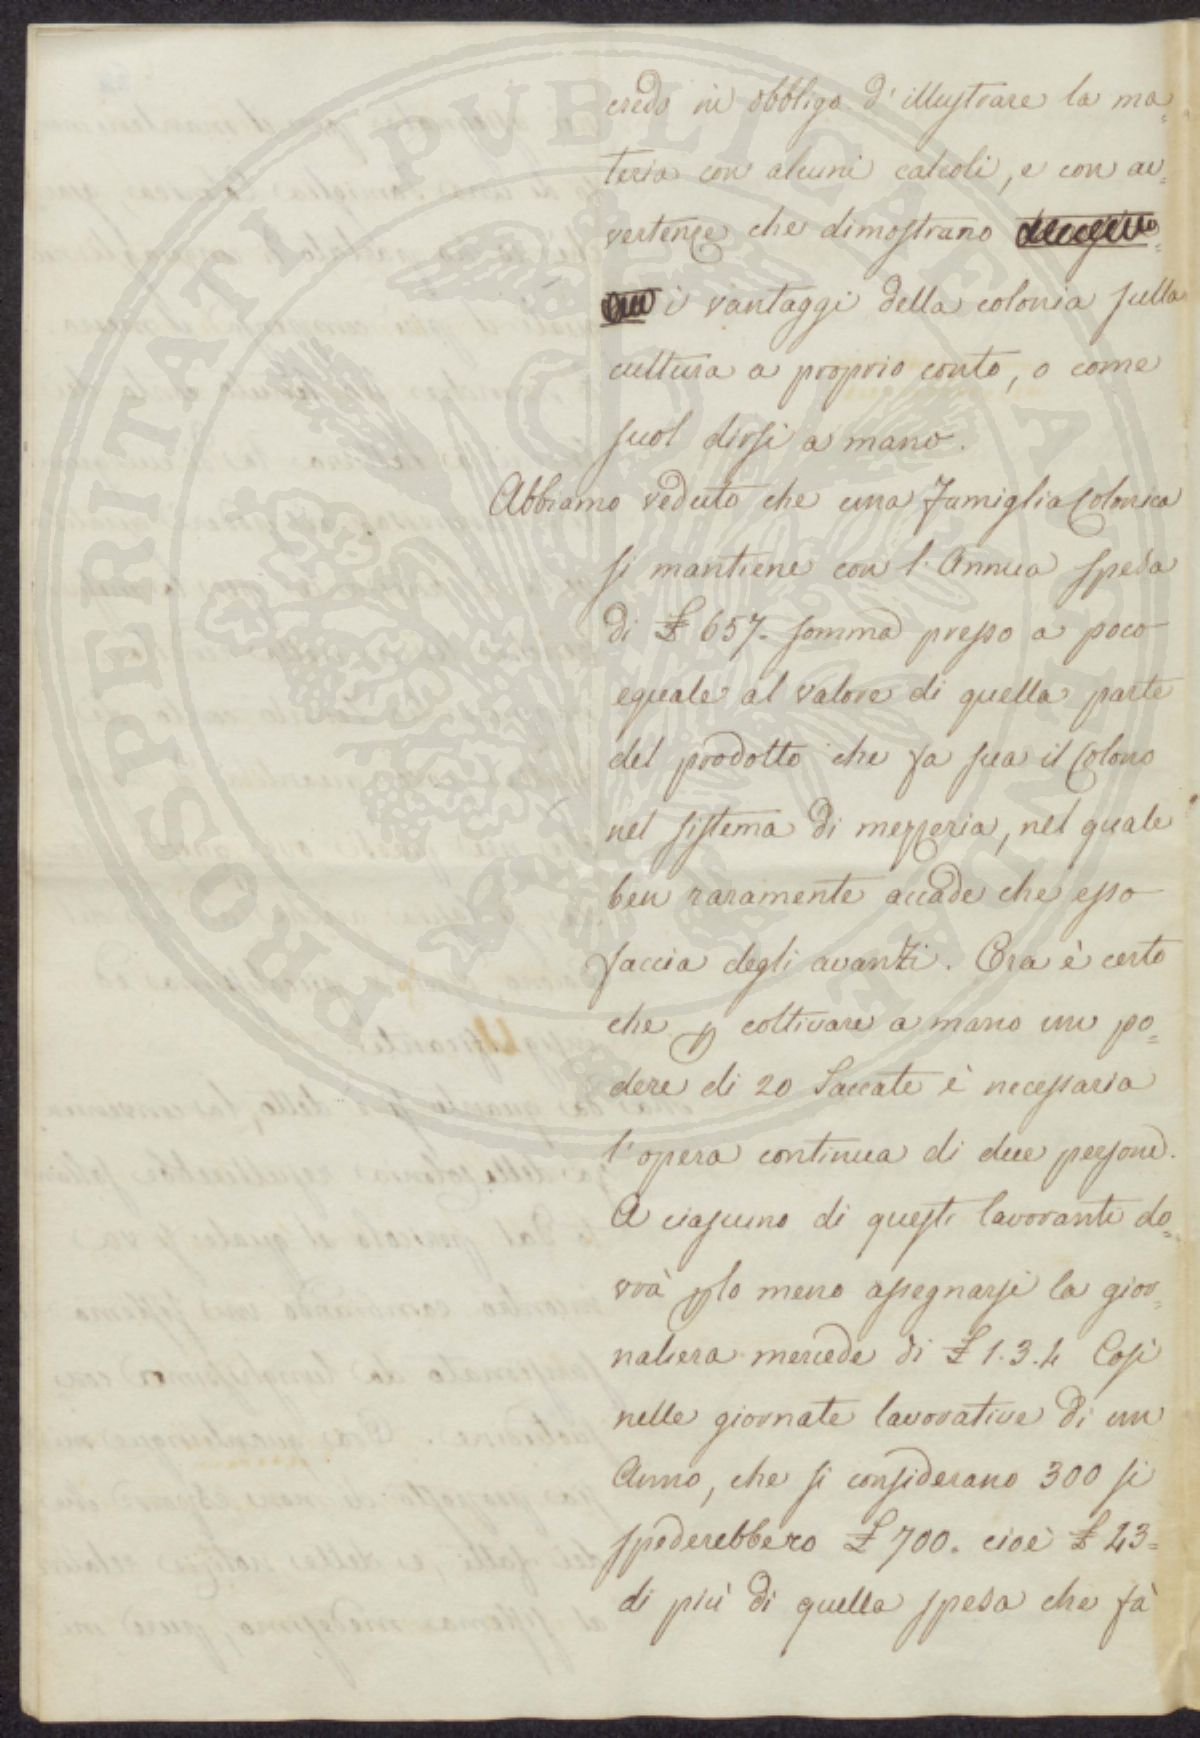 credo in obbligo d'illustrare la ma=
teria con alcuni calcoli, e con av=
vertenze che dimostrano
i vantaggi della colonia sulla
cultura a proprio conto, o come
suol dirsi a mano.
Abbiamo veduto che una Famiglia Colonica
si mantiene con l'Annua spesa
di £ 657. somma presso a poco
eguale al valore di quella parte
del prodotto che fa sua il Colono
nel sistema di mezzeria, nel quale
ben raramente accade che esso
faccia degli avanzi. Ora è certo
che p coltivare a mano un po=
dere di 20 Saccate è necessaria
l'opera continua di due persone.
A ciascuno di questi lavoranti do=
vrà plo meno assegnarsi la gior=
naliera mercede di £ 1.3.4 Così
nelle giornate lavorative di un
Anno, che si considerano 300 si
spederebbero £ 700. cioè £ 43=
di più di quella spesa che fà
PROSPERITATI PUBLICAE AUGENDAE